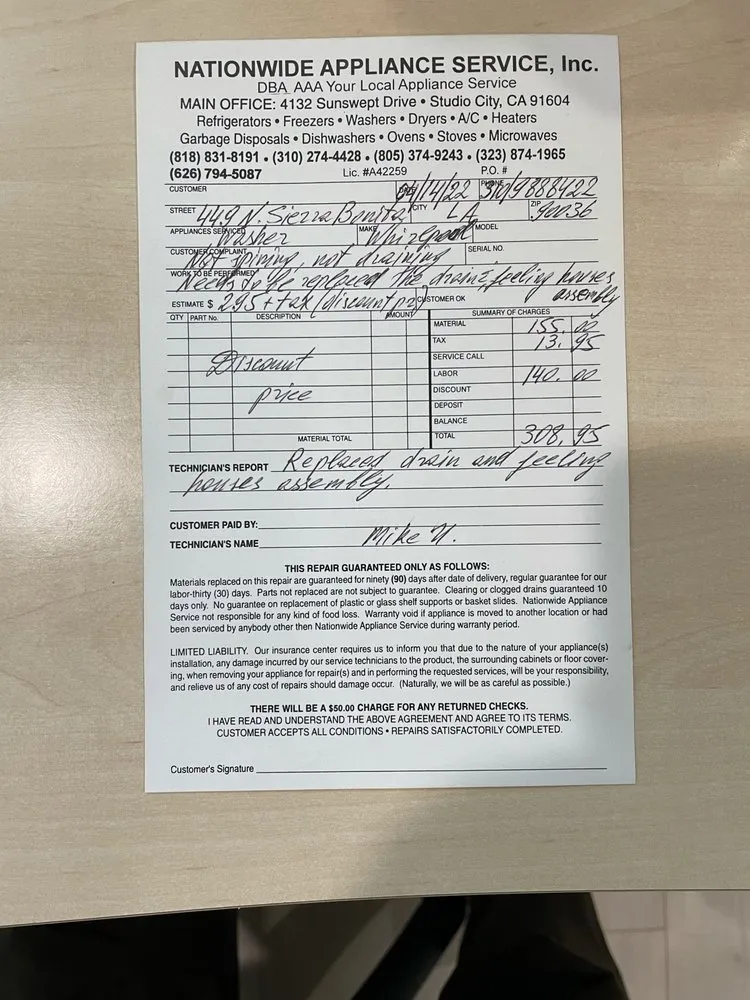 NATIONWIDE APPLIANCE SERVICE, Inc.
DBA AAA Your Local Appliance Service
MAIN OFFICE: 4132 Sunswept Drive • Studio City, CA 91604
Refrigerators • Freezers • Washers • Dryers • A/C • Heaters
Garbage Disposals • Dishwashers • Ovens • Stoves • Microwaves
(818) 831-8191 • (310) 274-4428 • (805) 374-9243 • (323) 874-1965
(626) 794-5087 Lic. #A42259 P.O. #
CUSTOMER /14/22 PHONE 310/9888422
STREET 449 N. Sierra Bonita CITY LA ZIP 90036
APPLIANCES SERVICED Washer MAKE Whirlpool MODEL
CUSTOMER COMPLAINT Not spining, not draining SERIAL NO.
WORK TO BE PERFORMED Needs to be replaced the drain & feeling houses
assembly
ESTIMATE $ 295 + tax (discount CUSTOMER OK
QTY PART No. DESCRIPTION AMOUNT SUMMARY OF CHARGES
MATERIAL 155.00
TAX 13.95
SERVICE CALL
Discount
LABOR 140.00
DISCOUNT
price
DEPOSIT
BALANCE
MATERIAL TOTAL TOTAL 308.95
TECHNICIAN'S REPORT Replaced drain and feeling
houses assembly.
CUSTOMER PAID BY:
TECHNICIAN'S NAME Mike N.
THIS REPAIR GUARANTEED ONLY AS FOLLOWS:
Materials replaced on this repair are guaranteed for ninety (90) days after date of delivery, regular guarantee for our
labor-thirty (30) days. Parts not replaced are not subject to guarantee. Clearing or clogged drains guaranteed 10
days only. No guarantee on replacement of plastic or glass shelf supports or basket slides. Nationwide Appliance
Service not responsible for any kind of food loss. Warranty void if appliance is moved to another location or had
been serviced by anybody other then Nationwide Appliance Service during warranty period.
LIMITED LIABILITY. Our insurance center requires us to inform you that due to the nature of your appliance(s)
installation, any damage incurred by our service technicians to the product, the surrounding cabinets or floor cover-
ing, when removing your appliance for repair(s) and in performing the requested services, will be your responsibility,
and relieve us of any cost of repairs should damage occur. (Naturally, we will be as careful as possible.)
THERE WILL BE A $50.00 CHARGE FOR ANY RETURNED CHECKS.
I HAVE READ AND UNDERSTAND THE ABOVE AGREEMENT AND AGREE TO ITS TERMS.
CUSTOMER ACCEPTS ALL CONDITIONS • REPAIRS SATISFACTORILY COMPLETED.
Customer's Signature